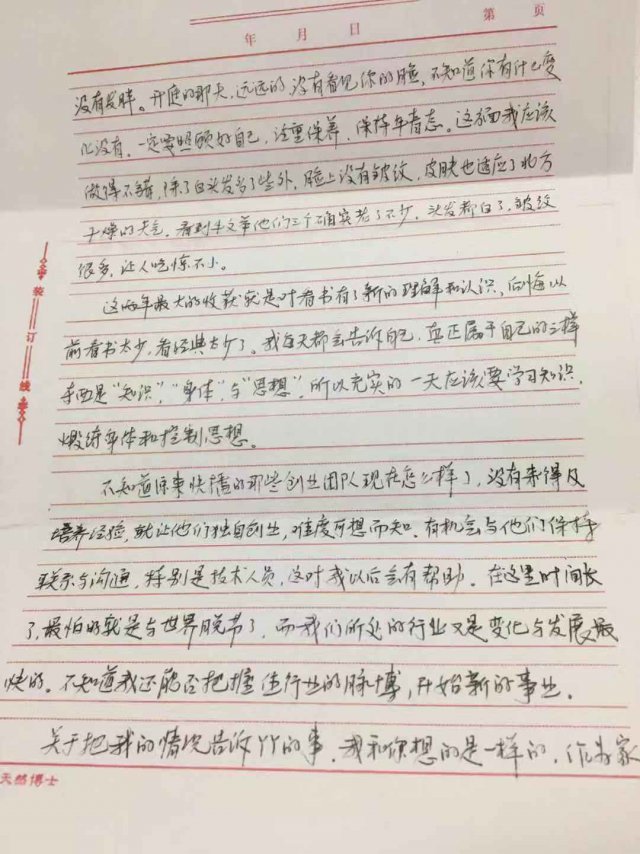 第 页
年 月 日
没有发胖。开庭的那天，远远的，没有看见你的脸，不知道你有什么变
化没有，一定要照顾好自己，注重保养，保持年青态。这方面我应该
做得不错，除了白头发多了些外，脸上没有皱纹，皮肤也适应了北方
干燥的天气。看到牛文举他们三个确实老了不少，头发都白了，皱纹
很多，让人吃惊不小。
这两年最大的收获就是对看书有了新的理解和认识，后悔以
前看书太少，看经典太少了。我每天都会告诉自己，真正属于自己的三样
东西是“知识”，“身体”，与“思想”，所以充实的一天应该要学习知识，
煅练身体和控制思想。
不知道原来快播的那些创业团队现在怎么样了，没有来得及
培养经验，就让他们独自创业，难度可想而知。有机会与他们保持
联系与沟通，特别是技术人员，这对我以后会有帮助。在这里时间长
了，最怕的就是与世界脱节了，而我们所处的行业又是变化与发展最
快的。不知道我还能否把握住行业的脉博，开始新的事业。
关于把我的情况告诉丫丫的事，我和你想的是一样的，作为家
装
订
线
天然博士